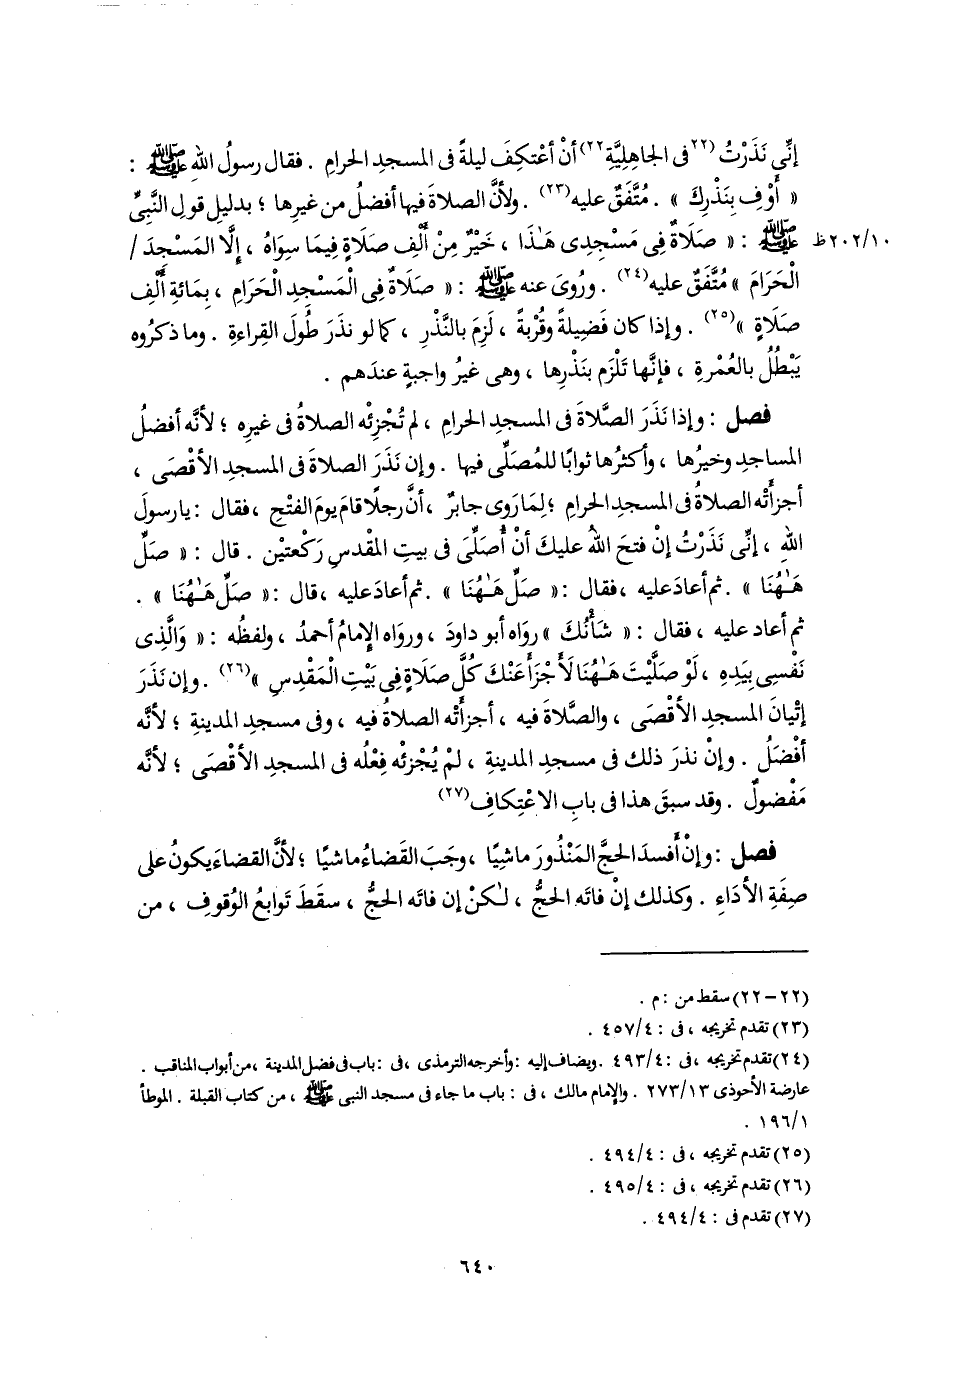 إنِّى نَذَرْتُ (٢٢فى الجاهِلِيَّةِ٢٢) أنْ أعْتكِفَ ليلةً فى المسجدِ الحرامِ . فقال رسولُ اللهِ ﷺ :
« أَوْفِ بِنَذْرِكَ » . مُتَّفَقٌ عليه(٢٣) . ولأنَّ الصلاةَ فيها أفضلُ من غيرِها ؛ بدليلِ قولِ النَّبِىِّ
ﷺ : « صَلَاةٌ فِى مَسْجِدِى هَـٰذَا ، خَيْرٌ مِنْ أَلْفِ صَلَاةٍ فِيمَا سِوَاهُ ، إلَّا المَسْجِدَ / ٢٠٢/١٠ظ
الْحَرَامَ » مُتَّفَقٌ عليه(٢٤) . ورُوِىَ عنه ﷺ : « صَلَاةٌ فِى الْمَسْجِدِ الْحَرَامِ ، بِمَائةِ أَلْفِ
صَلَاةٍ »(٢٥) . وإذا كان فَضِيلةً وقُرْبةً ، لَزِمَ بالنَّذْرِ ، كما لو نذَرَ طُولَ القِراءةِ . وما ذكرُوه
يَبْطُلُ بالعُمْرةِ ، فإنَّها تَلْزَم بنَذْرِها ، وهى غيرُ واجبةٍ عندَهم .
فصل : وإذا نَذَرَ الصَّلاةَ فى المسجدِ الحرامِ ، لم تُجْزِئْه الصلاةُ فى غيرِه ؛ لأنَّه أفضلُ
المساجدِ وخيرُها ، وأكثرُها ثوابًا للمُصَلِّى فيها . وإن نَذَرَ الصلاةَ فى المسجدِ الأقْصَى ،
أجزأَتْه الصلاةُ فى المسجدِ الحرامِ ؛ لِمَا رَوى جابرٌ ، أنَّ رجلًا قامَ يومَ الفتْحِ ، فقال : يا رسولَ
اللهِ ، إنِّى نَذَرْتُ إن فتحَ اللهُ عليكَ أنْ أُصَلِّىَ فى بيتِ المقْدسِ رَكْعتيْن . قال : « صَلِّ
هَـٰهُنَا » . ثم أعادَ عليه ، فقال : « صَلِّ هَـٰهُنَا » . ثم أعادَ عليه ، قال : « صَلِّ هَـٰهُنَا » .
ثم أعاد عليه ، فقال : « شَأْنُكَ » رواه أبو داودَ ، ورواه الإِمامُ أحمدُ ، ولفظُه : « وَالَّذِى
نَفْسِى بِيَدِهِ ، لَوْ صَلَّيْتَ هَـٰهُنَا لَأَجْزَأَ عَنْكَ كُلَّ صَلَاةٍ فِى بَيْتِ الْمَقْدِسِ »(٢٦) . وإن نَذَرَ
إتْيانَ المسجدِ الأقْصَى ، والصَّلاةَ فيه ، أجزأَتْه الصلاةُ فيه ، وفى مسجدِ المدينةِ ؛ لأنَّه
أفْضَلُ . وإنْ نذرَ ذلك فى مسجدِ المدينةِ ، لمْ يُجْزئْه فِعْلُه فى المسجدِ الأقْصَى ؛ لأنَّه
مَفْضولٌ . وقد سبقَ هذا فى بابِ الاعْتِكافِ(٢٧)
فصل : وإنْ أَفسدَ الحجَّ المَنْذُورَ ماشِيًا ، وجَبَ القَضاءُ ماشيًا ؛ لأنَّ القضاءَ يكونُ على
صِفَةِ الأدَاءِ . وكذلك إنْ فاتَه الحجُّ ، لـٰكنْ إن فاتَه الحجُّ ، سقَطَ تَوابعُ الوُقوفِ ، من
(٢٢ – ٢٢) سقط من : م .
(٢٣) تقدم تخريجه ، فى : ٤٥٧/٤ .
(٢٤) تقدم تخريجه ، فى : ٤٩٣/٤ . ويضاف إليه : وأخرجه الترمذى ، فى : باب فى فضل المدينة ، من أبواب المناقب .
عارضة الأحوذى ٢٧٣/١٣ . والإمام مالك ، فى : باب ما جاء فى مسجد النبى ﷺ ، من كتاب القبلة . الموطأ
١٩٦/١ .
(٢٥) تقدم تخريجه ، فى : ٤٩٤/٤ .
(٢٦) تقدم تخريجه ، فى : ٤٩٥/٤ .
(٢٧) تقدم فى : ٤٩٤/٤ .
٦٤٠